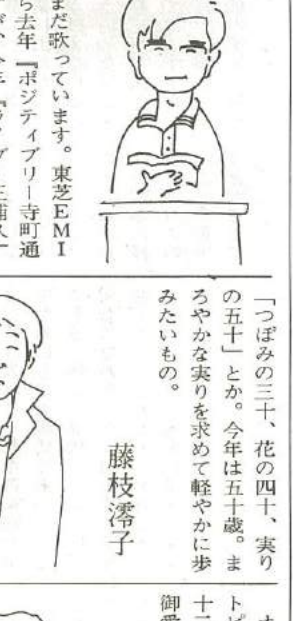 まだ歌っています。東芝EMI
ら去年『ポジティブリー寺町通
「つぼみの三十、花の四十、実り
の五十」とか。今年は五十歳。ま
ろやかな実りを求めて軽やかに歩
みたいもの。
藤枝澪子
御愛